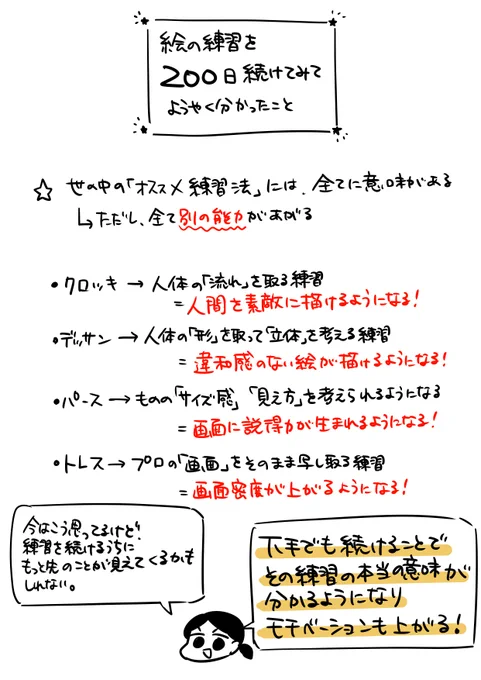 絵の練習を
200日続けてみて
ようやく分かったこと
☆ 世の中の「オススメ練習法」には、全てに意味がある
↳ただし、全て別の能力があがる
・クロッキー → 人体の「流れ」を取る練習
=人間を素敵に描けるようになる!
・デッサン → 人体の「形」を取って「立体」を考える練習
=違和感のない絵が描けるようになる!
・パース → ものの「サイズ感」「見え方」を考えられるようになる
=画面に説得力が生まれるようになる!
・トレス → プロの「画面」をそのまま写し取る練習
=画面密度が上がるようになる!
今はこう思ってるけど!
練習を続けるうちに
もっと先のことが見えてくるかも
しれない。
下手でも続けることで
その練習の本当の意味が
分かるようになり
モチベーションも上がる!